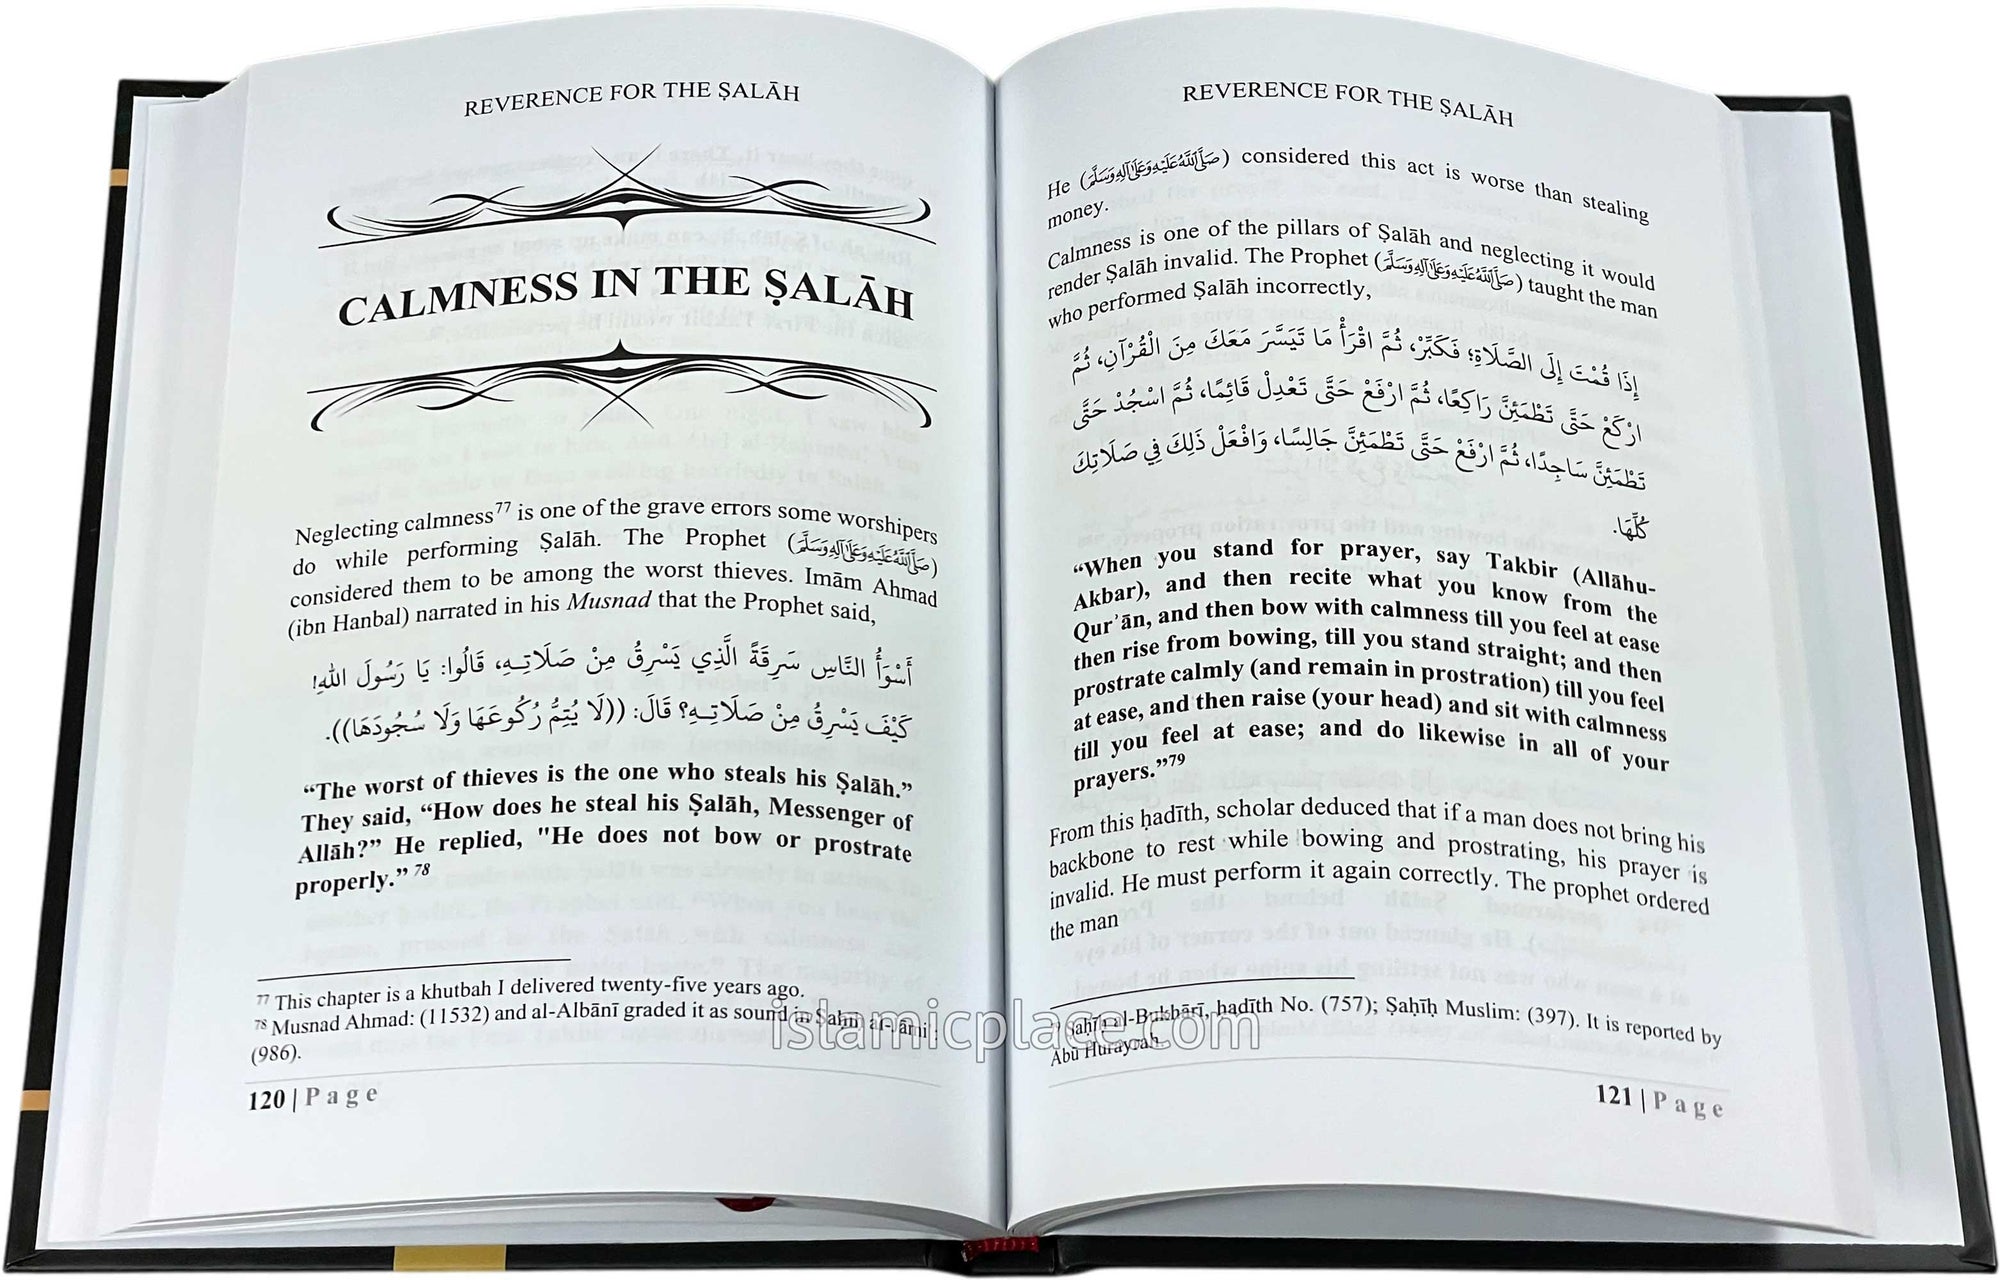 REVERENCE FOR THE ṢALĀH
CALMNESS IN THE ṢALĀH
Neglecting calmness⁷⁷ is one of the grave errors some worshipers
do while performing Ṣalāh. The Prophet (صَلَّى اللَّهُ عَلَيْهِ وَعَلَى آلِهِ وَسَلَّمَ)
considered them to be among the worst thieves. Imām Ahmad
(ibn Hanbal) narrated in his Musnad that the Prophet said,
أَسْوَأُ النَّاسِ سَرِقَةً الَّذِي يَسْرِقُ مِنْ صَلَاتِـهِ، قَالُوا: يَا رَسُولَ اللهِ!
كَيْفَ يَسْرِقُ مِنْ صَلَاتِـهِ؟ قَالَ: ((لَا يُتِمُّ رُكُوعَهَا وَلَا سُجُودَهَا)).
“The worst of thieves is the one who steals his Ṣalāh.”
They said, “How does he steal his Ṣalāh, Messenger of
Allāh?” He replied, "He does not bow or prostrate
properly.” ⁷⁸
⁷⁷ This chapter is a khutbah I delivered twenty-five years ago.
⁷⁸ Musnad Ahmad: (11532) and al-Albānī graded it as sound in Ṣaḥīḥ al-Jāmiʿ:
(986).
120 | Page
REVERENCE FOR THE ṢALĀH
He (صَلَّى اللَّهُ عَلَيْهِ وَعَلَى آلِهِ وَسَلَّمَ) considered this act is worse than stealing
money.
Calmness is one of the pillars of Ṣalāh and neglecting it would
render Ṣalāh invalid. The Prophet (صَلَّى اللَّهُ عَلَيْهِ وَعَلَى آلِهِ وَسَلَّمَ) taught the man
who performed Ṣalāh incorrectly,
إِذَا قُمْتَ إِلَى الصَّلَاةِ؛ فَكَبِّرْ، ثُمَّ اقْرَأْ مَا تَيَسَّرَ مَعَكَ مِنَ الْقُرْآنِ، ثُمَّ
ارْكَعْ حَتَّى تَطْمَئِنَّ رَاكِعًا، ثُمَّ ارْفَعْ حَتَّى تَعْدِلَ قَائِمًا، ثُمَّ اسْجُدْ حَتَّى
تَطْمَئِنَّ سَاجِدًا، ثُمَّ ارْفَعْ حَتَّى تَطْمَئِنَّ جَالِسًا، وَافْعَلْ ذَلِكَ فِي صَلَاتِكَ
كُلِّهَا.
“When you stand for prayer, say Takbir (Allāhu-
Akbar), and then recite what you know from the
Qurʾān, and then bow with calmness till you feel at ease
then rise from bowing, till you stand straight; and then
prostrate calmly (and remain in prostration) till you feel
at ease, and then raise (your head) and sit with calmness
till you feel at ease; and do likewise in all of your
prayers.”⁷⁹
From this ḥadīth, scholar deduced that if a man does not bring his
backbone to rest while bowing and prostrating, his prayer is
invalid. He must perform it again correctly. The prophet ordered
the man
Ṣaḥīḥ al-Bukhārī, ḥadīth No. (757); Ṣaḥīḥ Muslim: (397). It is reported by
Abū Hurayrah.
121 | Page
islamicplace.com